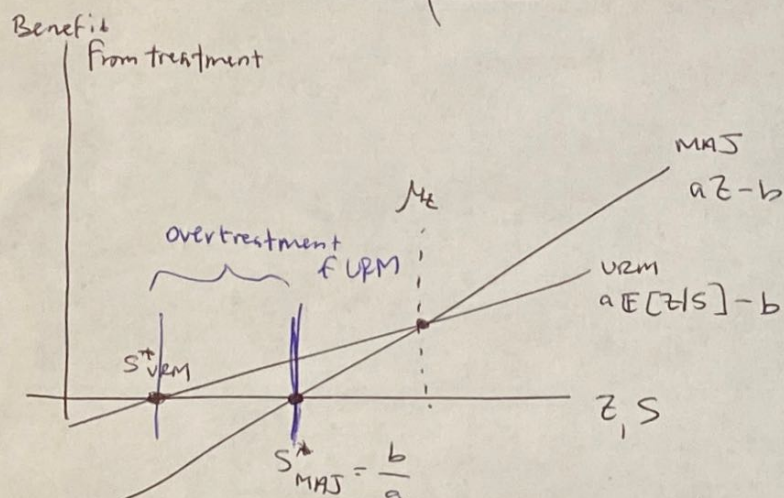 Benefit
from treatment
MAJ
aZ-b
μz
overtreatment
of URM
URM
aE[Z|S]-b
S*URM
Z, S
S*MAJ = b/a